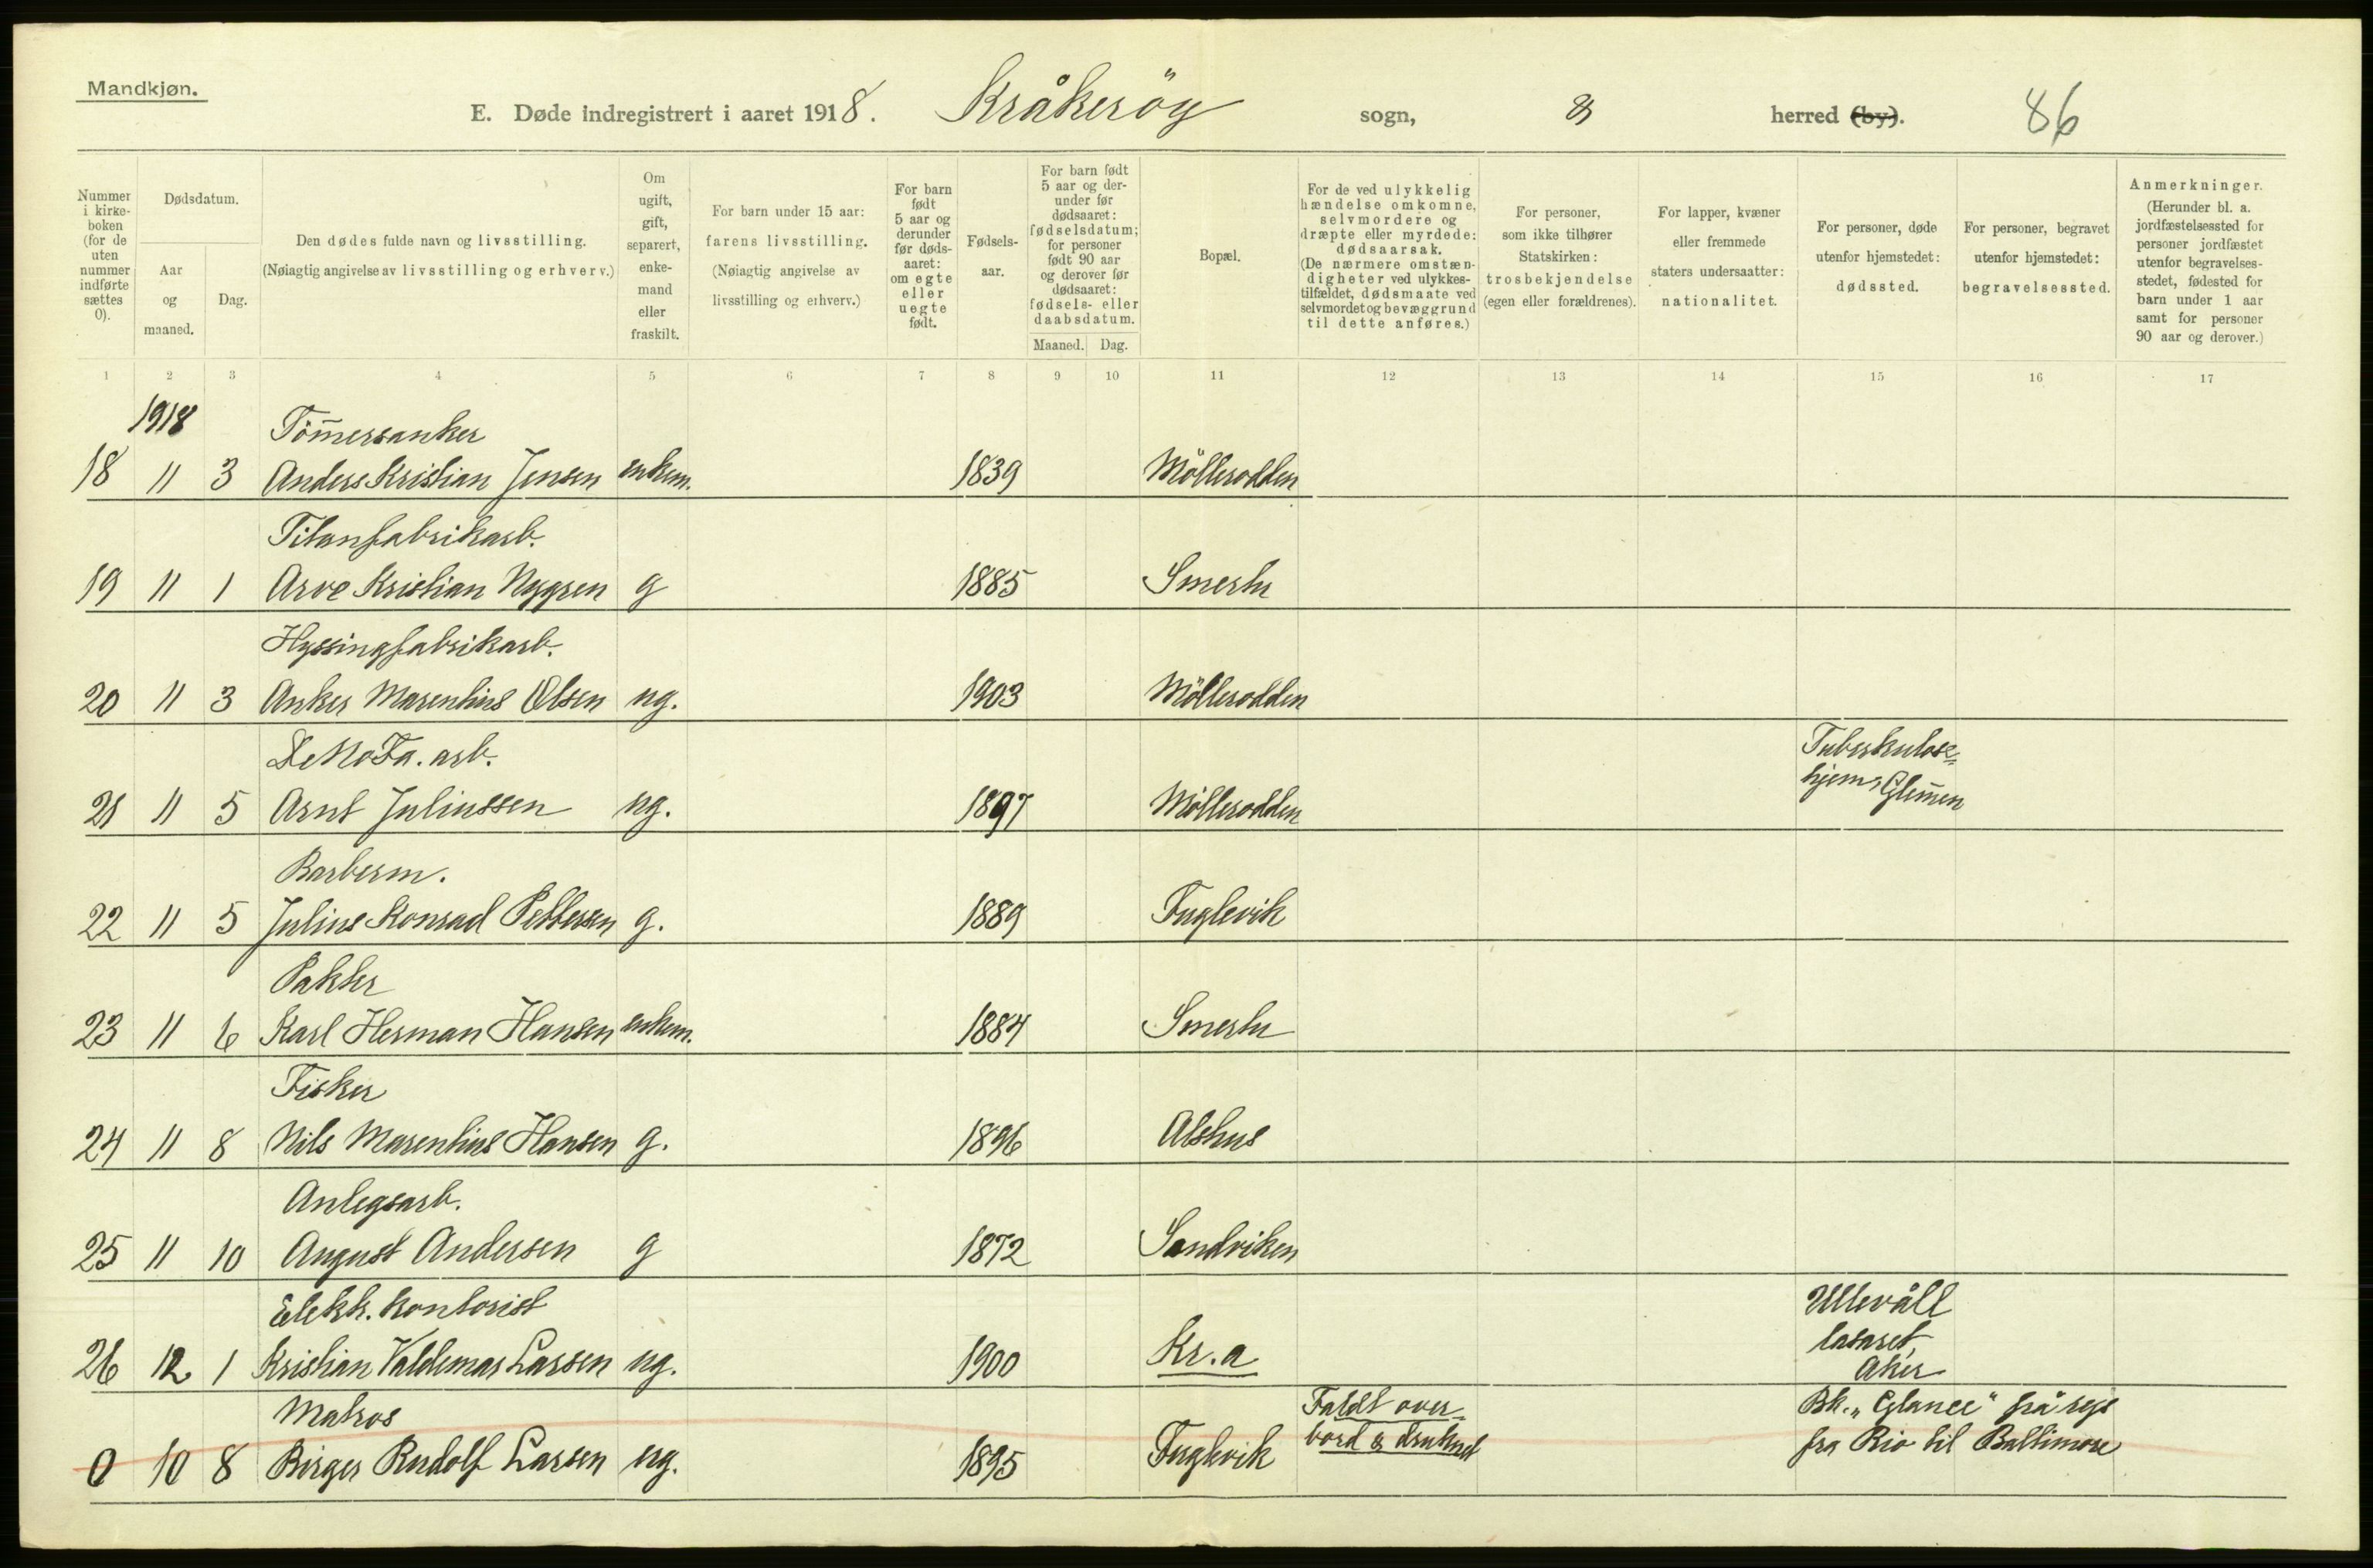 Mandkjøn.
E. Døde indregistrert i aaret 1918. Kråkeröy sogn, herred (by). 86
Nummer i kirke-boken (for de uten nummer indførte sættes 0).
Dødsdatum.
Aar og maaned.
Dag.
Den dødes fulde navn og livsstilling.
(Nøiagtig angivelse av livsstilling og erhverv.)
Om ugift, gift, separert, enke-mand eller fraskilt.
For barn under 15 aar: farens livsstilling.
(Nøiagtig angivelse av livsstilling og erhverv.)
For barn født 5 aar og derunder før døds-aaret: om egte eller uegte født.
Fødsels-aar.
For barn født 5 aar og der-under før dødsaaret: fødselsdatum; for personer født 90 aar og derover før dødsaaret: fødsels- eller daabsdatum.
Maaned. Dag.
Bopæl.
For de ved ulykkelig hændelse omkomne, selvmordere og dræpte eller myrdede: dødsaarsak.
(De nærmere omstæn-digheter ved ulykkes-tilfældet, dødsmaate ved selvmordet og bevæggrund til dette anføres.)
For personer, som ikke tilhører Statskirken: trosbekjendelse (egen eller forældrenes).
For lapper, kvæner eller fremmede staters undersaatter: nationalitet.
For personer, døde utenfor hjemstedet: dødssted.
For personer, begravet utenfor hjemstedet: begravelsessted.
Anmerkninger.
(Herunder bl. a. jordfæstelsessted for personer jordfæstet utenfor begravelses-stedet, fødested for barn under 1 aar samt for personer 90 aar og derover.)
1 2 3 4 5 6 7 8 9 10 11 12 13 14 15 16 17
1918
Tömersanker
18 11 3 Anders Kristian Jensen enkem. 1839 Möllerodden
Titanfabrikarb.
19 11 1 Arve Kristian Nygren g 1885 Smertu
Hyssingfabrikarb.
20 11 3 Anker Marentius Olsen ug. 1903 Möllerodden
DeNoFa. arb. Tuberkulose-
hjem, Glemen
21 11 5 Arnt Juliussen ug. 1897 Möllerodden
Barberm.
22 11 5 Julius Konrad Pettersen g. 1889 Fuglevik
Pakker
23 11 6 Karl Herman Hansen enkem. 1884 Smertu
Fisker
24 11 8 Nils Marentius Hansen g. 1896 Alshus
Anlegsarb.
25 11 10 August Andersen g 1872 Sandviken
Elekk. kontorist Ullevåll
lasaret,
26 12 1 Kristian Valdemar Larsen ug. 1900 Kr.a Aker
Matros Faldt over- Bk. "Glance" på rejs
bord & druknet fra Rio til Baltimore
0 10 8 Birger Rudolf Larsen ug. 1895 Fuglevik